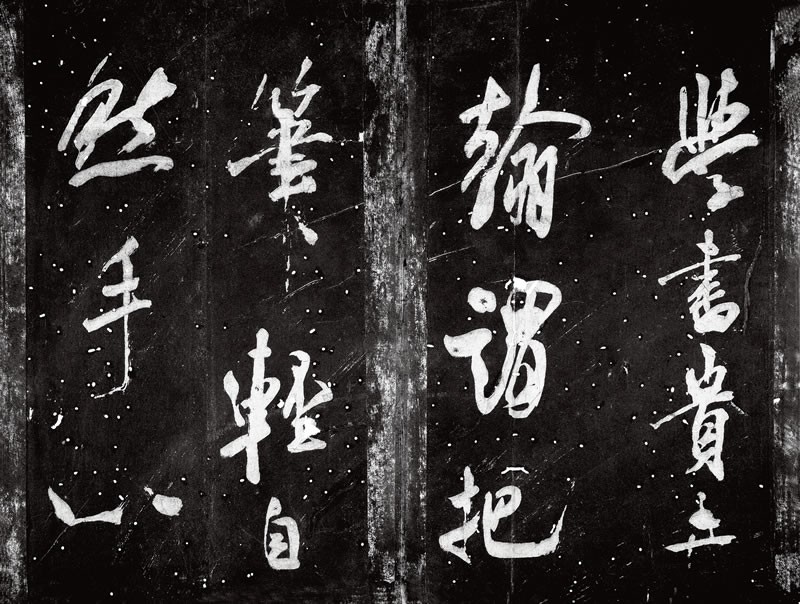 學書貴弄
翰謂把
筆輕自
然手心